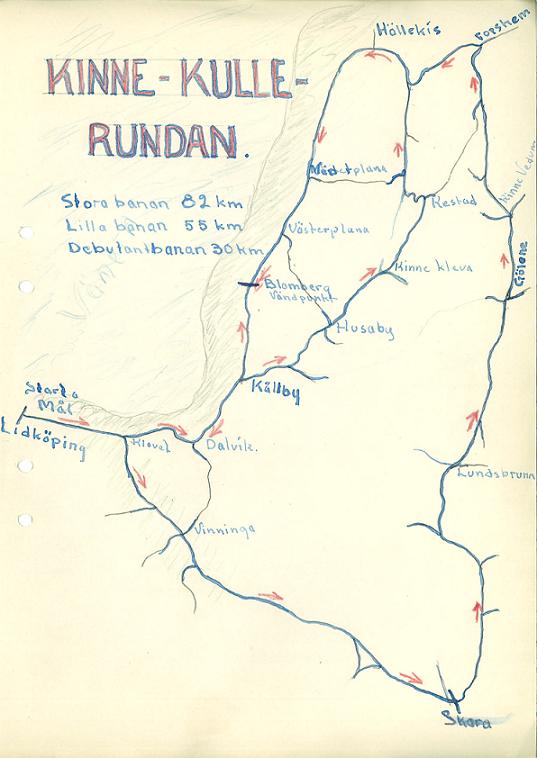 KINNE-KULLE-
RUNDAN.
Stora banan 82 km
Lilla banan 55 km
Debutantbanan 30 km
Hällekis
Forshem
Västerplana
Kestad
Kinne Vedum
Kinne kleva
Götene
Blomberg
Vändpunkt
Husaby
Källby
Start o
Mål
Lidköping
Dalvik.
Lundsbrunn
Vinninga
Skara